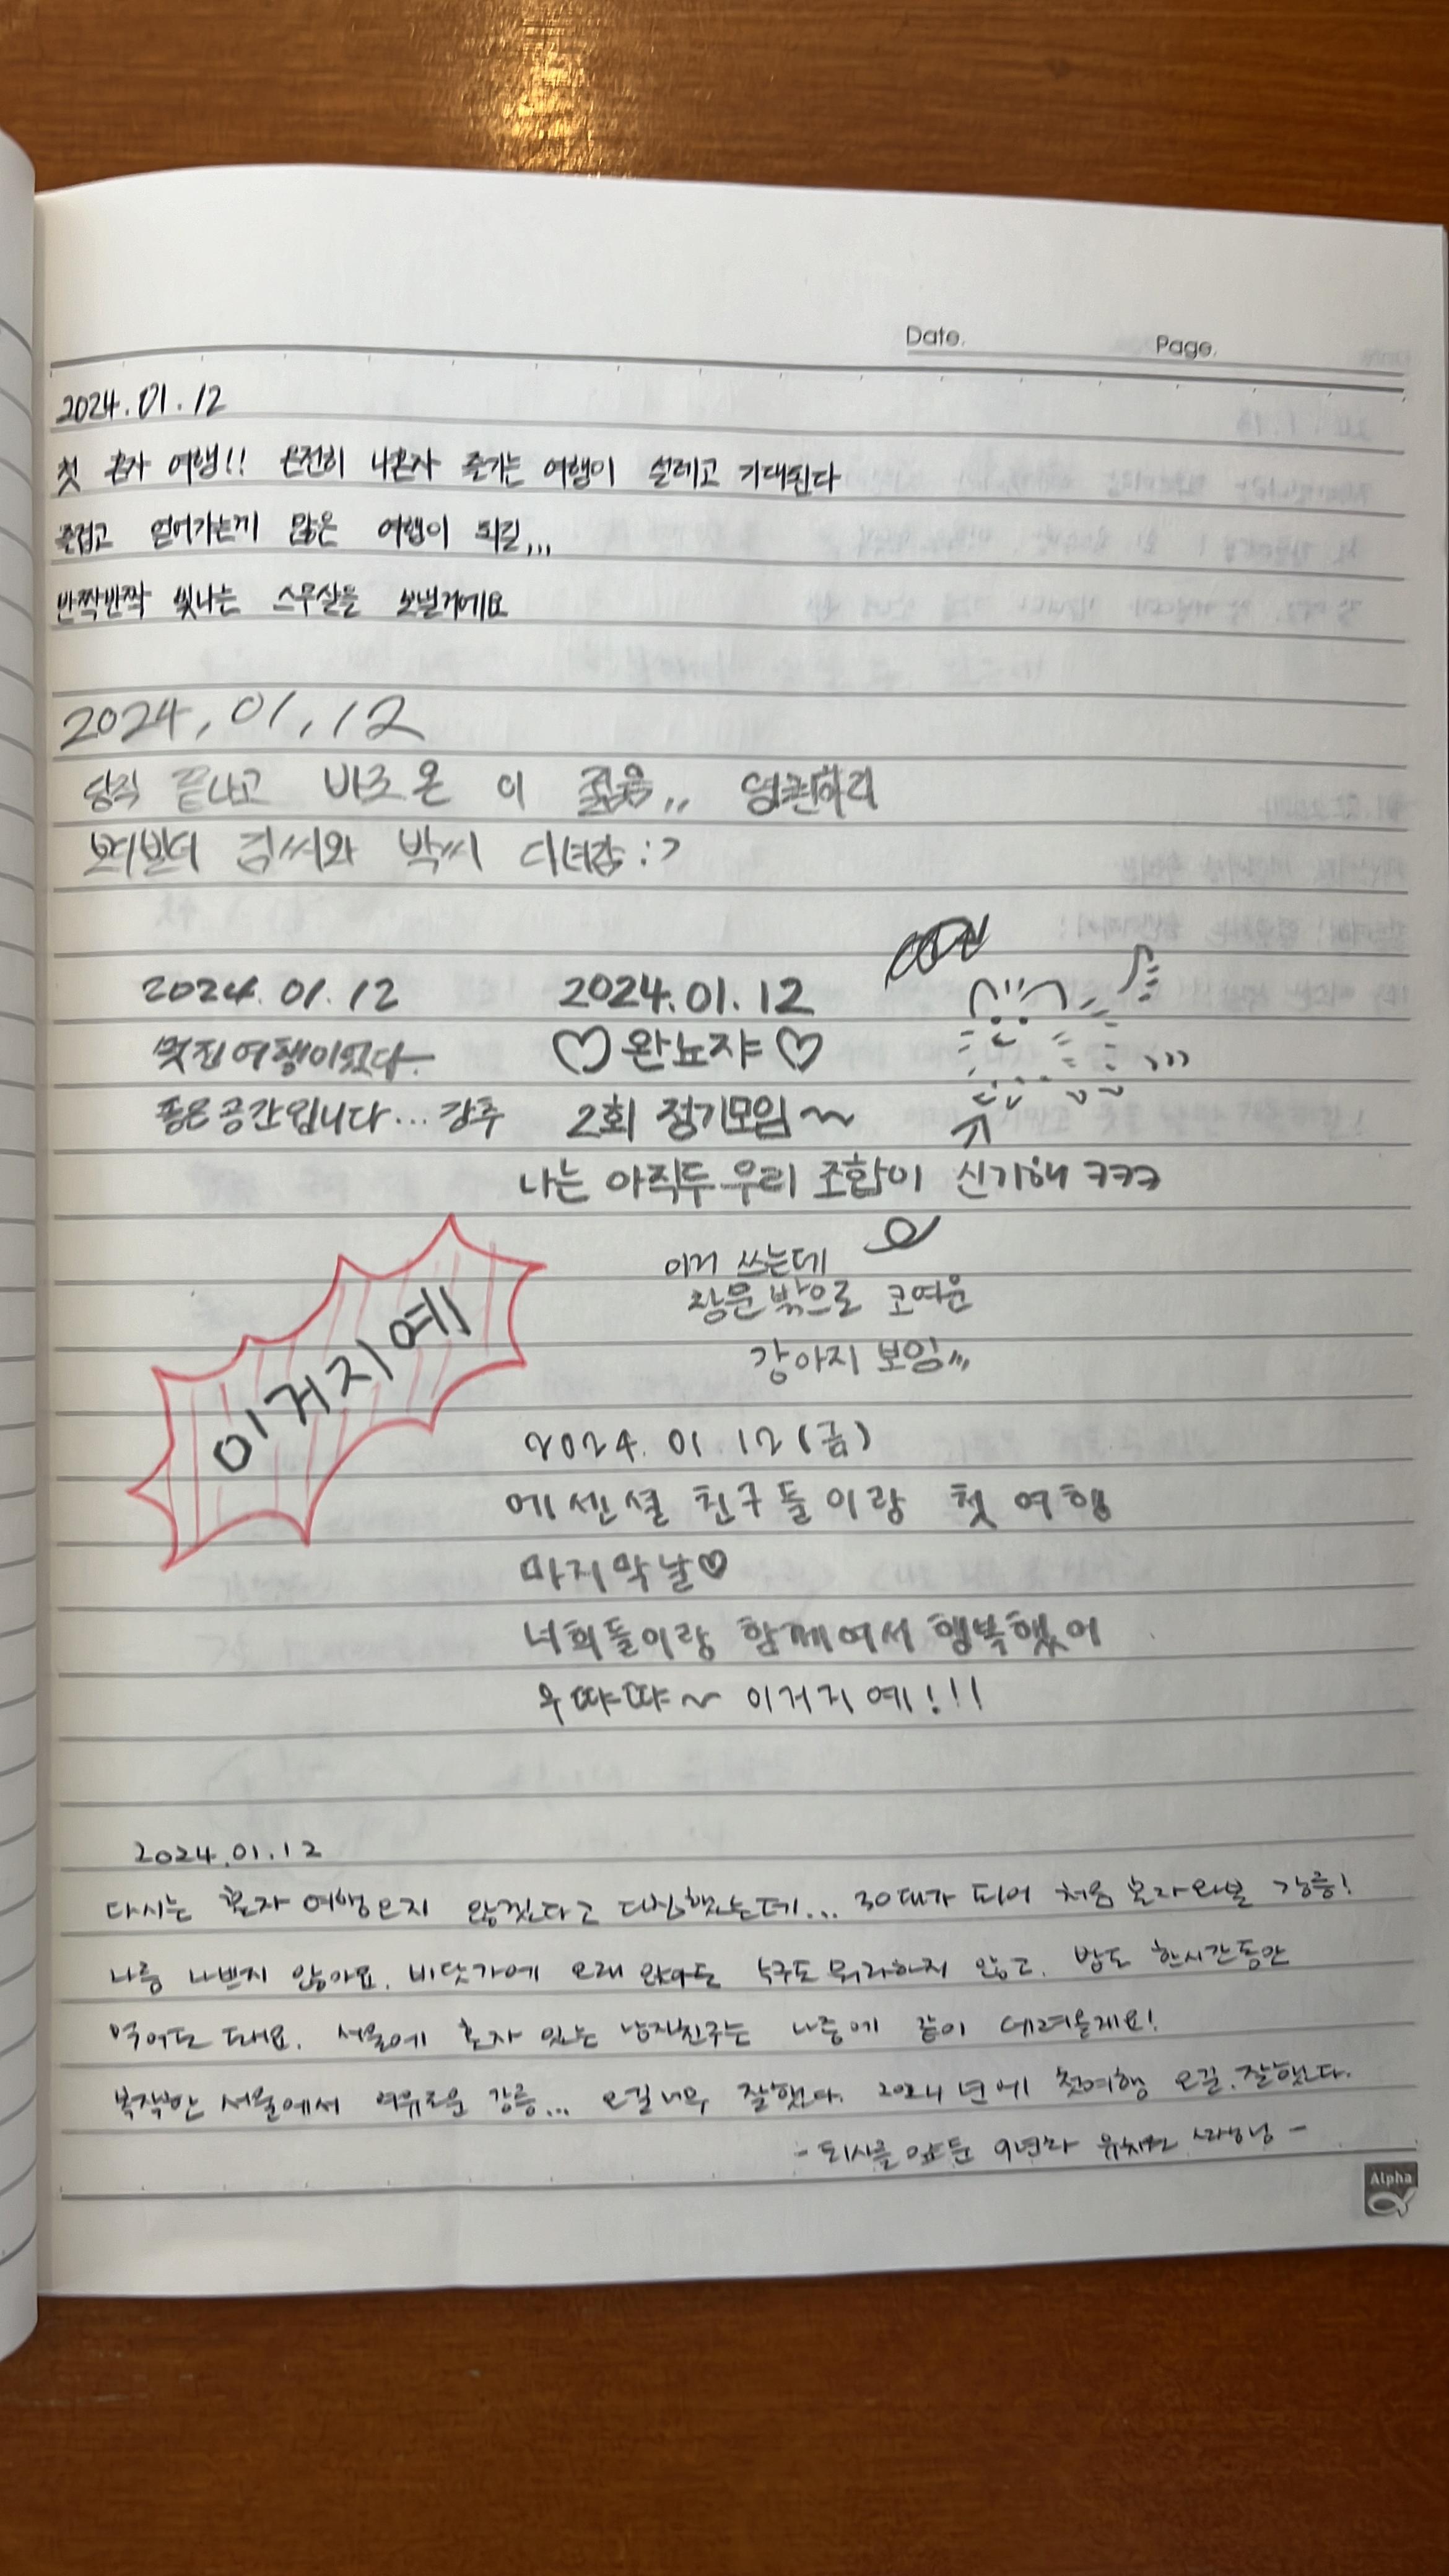 Date.
Page.
2024.01.12
첫 혼자 여행!! 온전히 나혼자 즐기는 여행이 설레고 기대된다
즐겁고 얻어가는게 많은 여행이 되길,,,
반짝반짝 빛나는 스무살을 보낼거에요
2024.01.12
당직 끝나고 바로 온 이 젊음,, 영원하리
보더빌더 김씨와 박씨 다녀감:>
2024.01.12
멋진여행이었다
좋은공간입니다... 강추
2024.01.12
♡완뇨쟈♡
2회 정기모임~
나는 아직두 우리 조합이 신기해 ㅋㅋㅋ
이거 쓰는데
창문밖으로 코여운
강아지 보임,,,
이거지예
2024.01.12(금)
에센셜 친구들이랑 첫 여행
마지막날♡
너희들이랑 함께여서 행복했어
우땨땨~ 이거지예!!!
2024.01.12
다시는 혼자 여행오지 않겠다고 다짐했는데... 30대가 되어 처음 혼자와본 강릉!
나름 나쁘지 않아요. 바닷가에 오래 앉아도 누구도 뭐라하지 않고. 밥도 한시간동안
먹어도 돼요. 서울에 혼자 있는 남자친구는 나중에 같이 데려올게요!
복작한 서울에서 여유로운 강릉... 오길너무 잘했다. 2024년에 첫여행 오길.잘했다.
- 퇴사를 앞둔 9년차 유치원 -
Alpha